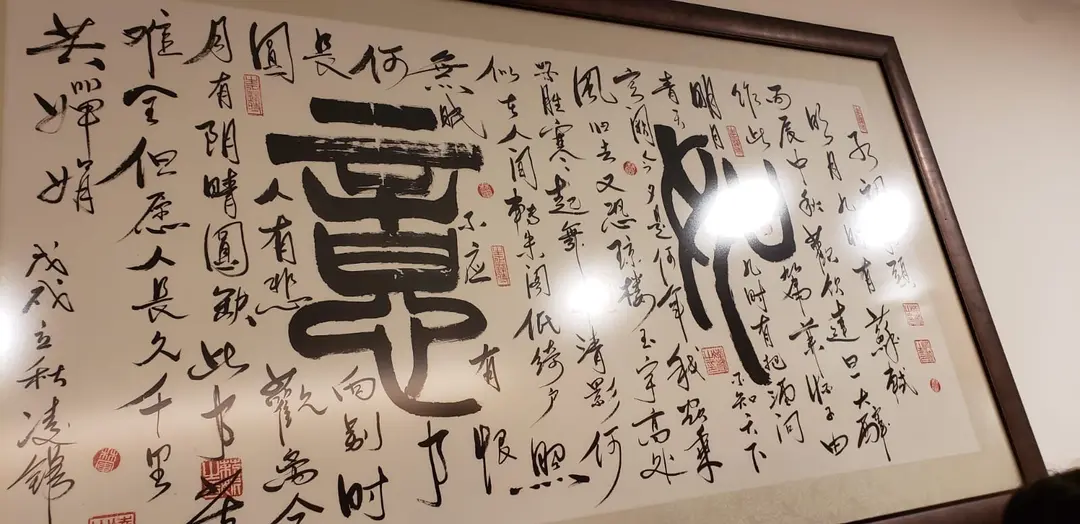 如意
水調歌頭 蘇軾
丙辰中秋歡飲達旦大醉
作此篇兼怀子由
明月几时有把酒问
青天不知天上
宫阙今夕是何年我欲乘
風归去又恐琼楼玉宇高处
不胜寒起舞弄清影何
似在人间转朱阁低绮户照
無眠不应有恨
何事
長向别时
圓人有悲歡离合
月有阴晴圆缺此事古
难全但愿人長久千里
共婵娟 戊戌立秋凌